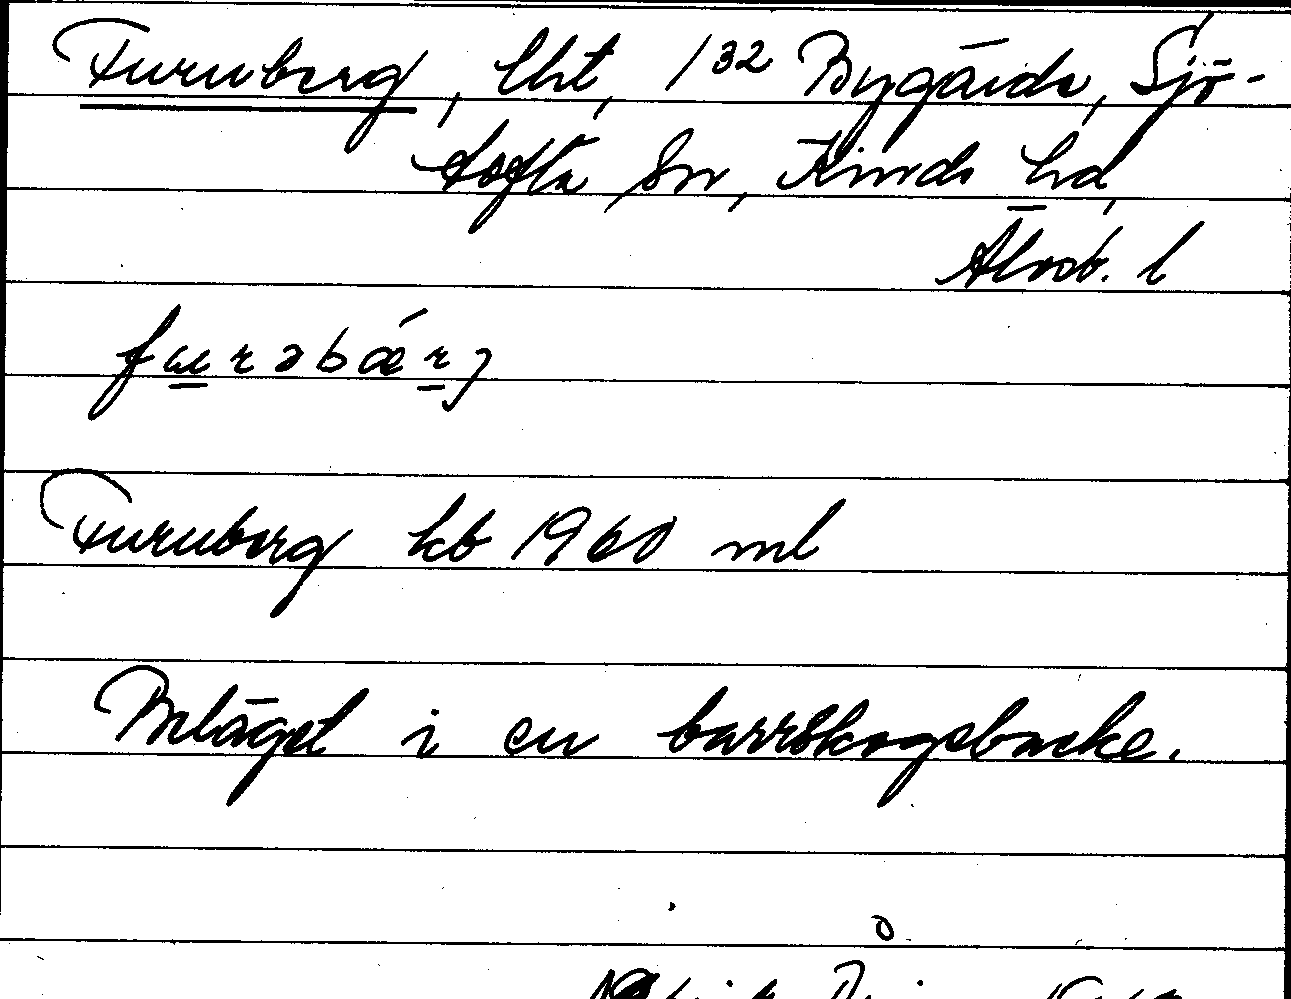 Furuberg, lht, 1³² Bygärde, Sjö-
tofta sn, Kinds hd,
Älvsb. l
furəbær̲j
Furuberg kb 1960 ml
Beläget i en barrskogsbacke.